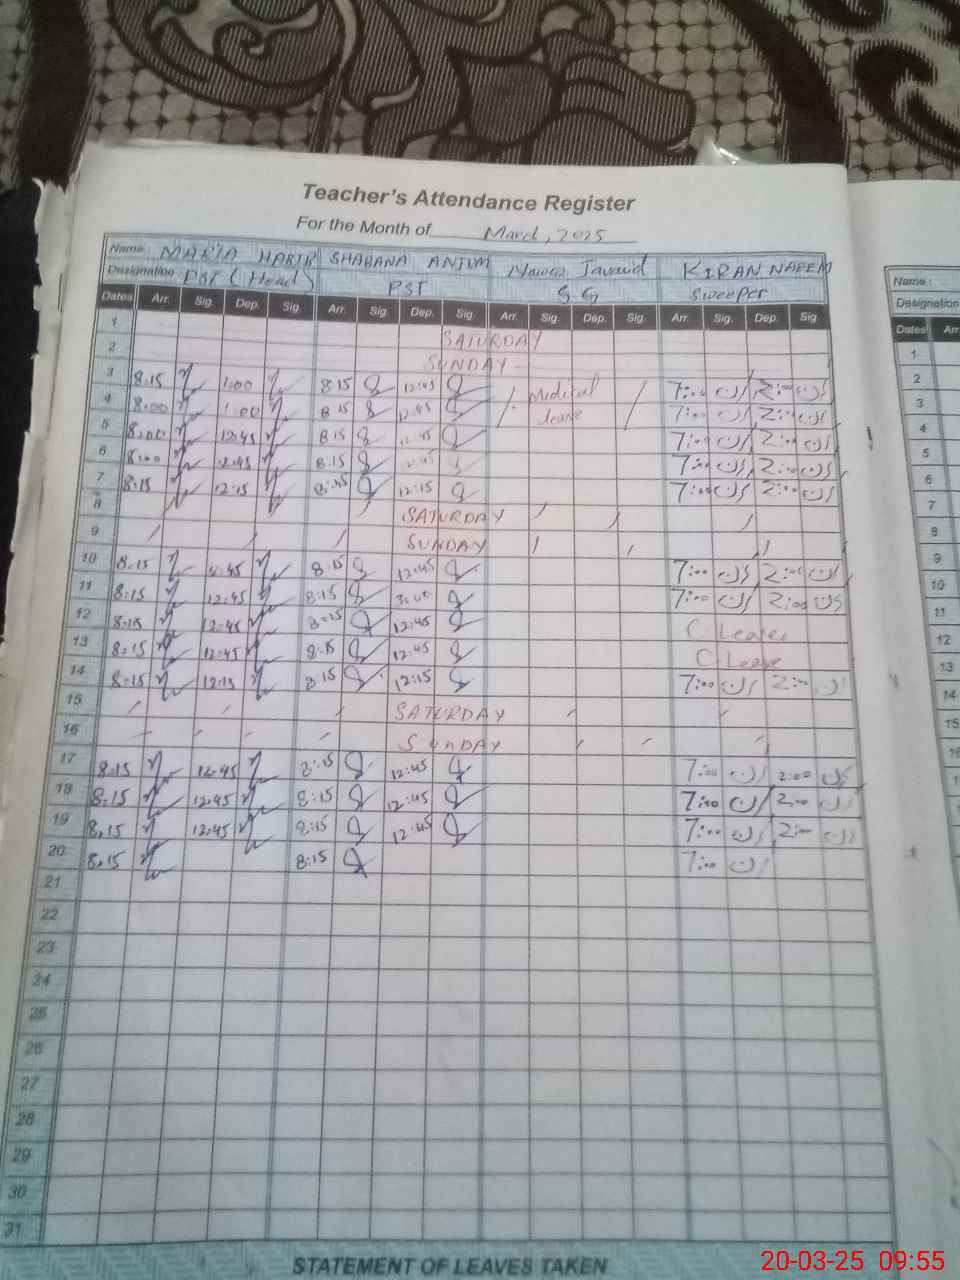 Teacher's Attendance Register
For the Month of March, 2025
Name: MARIA HABIB SHABANA ANJUM Javaid KIRAN NAEEM
Designation PST (Head) PST S.G Sweeper
Dates Arr. Sig. Dep. Sig. Arr. Sig. Dep. Sig. Arr. Sig. Dep. Sig. Arr. Sig. Dep. Sig.
1 SATURDAY
2 SUNDAY
3 8:15 1:00 8:15 12:45 Medical 7:00 2:00
4 8:00 1:00 8:15 12:45 leave 7:00 2:00
5 8:00 12:45 8:15 12:45 7:00 2:00
6 8:00 12:45 8:15 12:45 7:00 2:00
7 8:15 12:15 8:15 12:15 7:00 2:00
8 SATURDAY
9 SUNDAY
10 8:15 12:45 8:15 12:45 7:00 2:00
11 8:15 12:45 8:15 7:00 2:00
12 8:15 12:45 8:15 12:45 C. Leave
13 8:15 12:45 8:15 12:45 C Leave
14 8:15 12:15 8:15 12:15 7:00 2:00
15 SATURDAY
16 SUNDAY
17 8:15 12:45 8:15 12:45 7:00 2:00
18 8:15 12:45 8:15 12:45 7:00 2:00
19 8:15 12:45 8:15 12:45 7:00 2:00
20 8:15 8:15 7:00
21
22
23
24
25
26
27
28
29
30
31
STATEMENT OF LEAVES TAKEN
Name:
Designation
Dates Arr
1
2
3
4
5
6
7
8
9
10
11
12
13
14
15
16
17
18
20-03-25 09:55